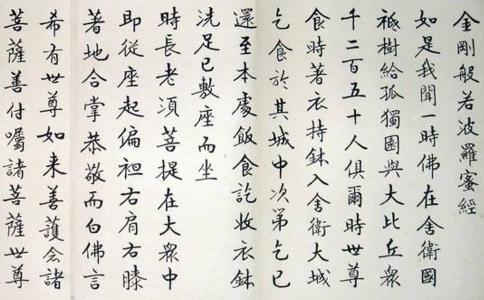 金剛般若波羅蜜經
如是我聞一時佛在舍衛國
祗樹給孤獨園與大比丘衆
千二百五十人俱爾時世尊
食時著衣持鉢入舍衛大城
乞食於其城中次第乞已
還至本處飯食訖收衣鉢
洗足已敷座而坐
時長老須菩提在大衆中
即從座起偏袒右肩右膝
著地合掌恭敬而白佛言
希有世尊如来善護念諸
菩薩善付囑諸菩薩世尊